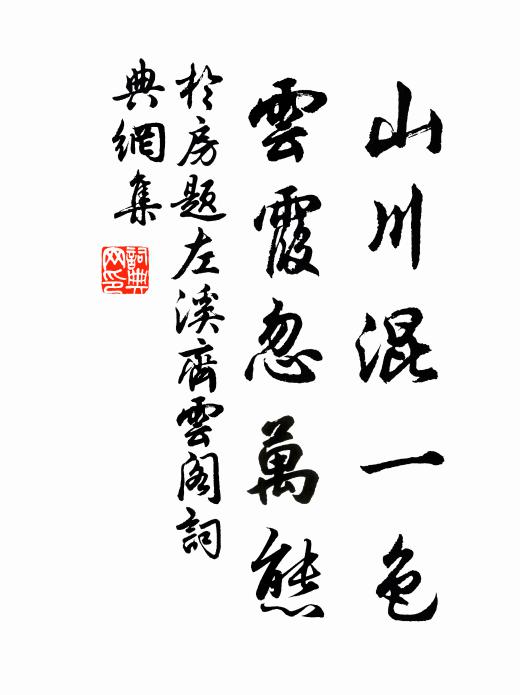 山川混一色
雲霞忽萬態
於房題左溪齊雲阁詞
典網集
詞典网印